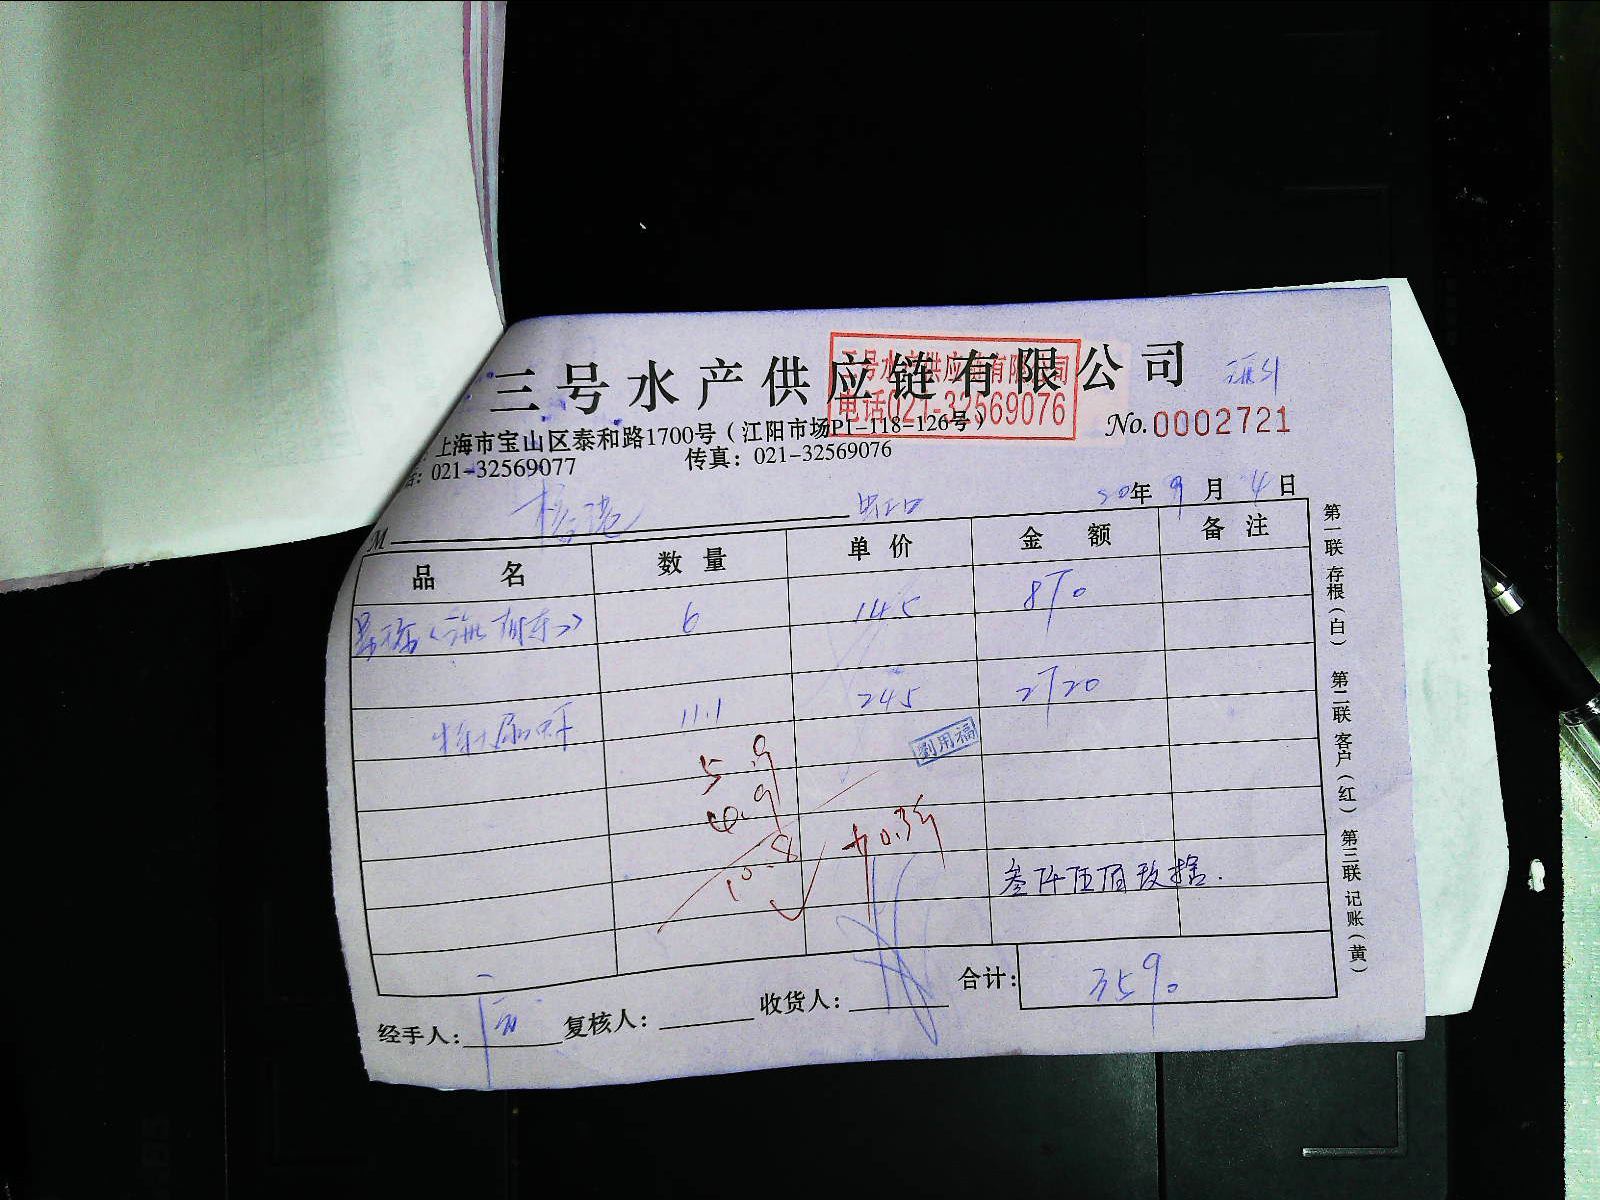 三号水产供应链有限公司
三号水产供应链有限公司
电话021-32569076
No.0002721
上海市宝山区泰和路1700号（江阳市场P1-118-126号）
话：021-32569077 传真：021-32569076
20年9月4日
M 虹口
品名 数量 单价 金额 备注
6 145 870
11.1 245 2720
劉用福
5.9
4.9
10.8 +0.3
叁仟伍佰玖拾.
合计： 3590
经手人： 复核人： 收货人：
第一联 存根（白） 第二联 客户（红） 第三联 记账（黄）